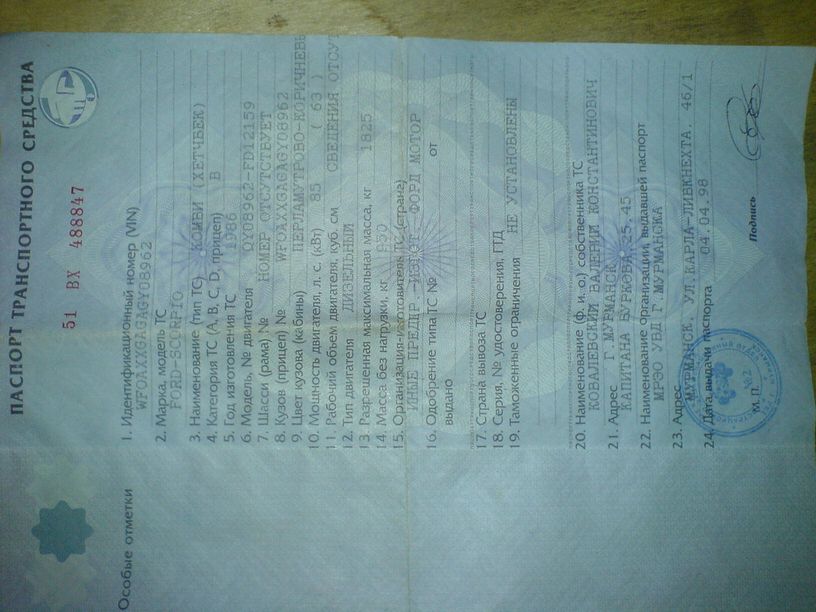 ПАСПОРТ ТРАНСПОРТНОГО СРЕДСТВА
51 ВХ 488847
1. Идентификационный номер (VIN)
WF0AXXGAGAGY08962
2. Марка, модель ТС
FORD-SCORPIO
3. Наименование (тип ТС) КОМБИ (ХЕТЧБЕК)
4. Категория ТС (A, B, C, D, прицеп) B
5. Год изготовления ТС 1986
6. Модель, № двигателя QY08962-FD12159
7. Шасси (рама) № НОМЕР ОТСУТСТВУЕТ
8. Кузов (прицеп) № WF0AXXGAGAGY08962
9. Цвет кузова (кабины) ПЕРЛАМУТРОВО-КОРИЧНЕВЫ
10. Мощность двигателя, л. с. (кВт) 85 ( 63 )
11. Рабочий объем двигателя, куб. см СВЕДЕНИЯ ОТСУТ
12. Тип двигателя ДИЗЕЛЬНЫЙ
13. Разрешенная максимальная масса, кг 1825
14. Масса без нагрузки, кг
15. Организация-изготовитель ТС (страна)
ИНЫЕ ПРЕДПР.-ИЗГОТ. ФОРД МОТОР
16. Одобрение типа ТС № от
выдано
17. Страна вывоза ТС
18. Серия, № удостоверения, ГТД
19. Таможенные ограничения НЕ УСТАНОВЛЕНЫ
20. Наименование (ф. и. о.) собственника ТС
КОВАЛЕВСКИЙ ВАЛЕРИЙ КОНСТАНТИНОВИЧ
21. Адрес Г.МУРМАНСК
КАПИТАНА БУРКОВА 25-45
22. Наименование Организации, выдавшей паспорт
МРЭО УВД Г.МУРМАНСКА
23. Адрес
МУРМАНСК, УЛ.КАРЛА-ЛИБКНЕХТА, 46/1
24. Дата выдачи паспорта 04.04.98
М. П. Подпись
Особые отметки